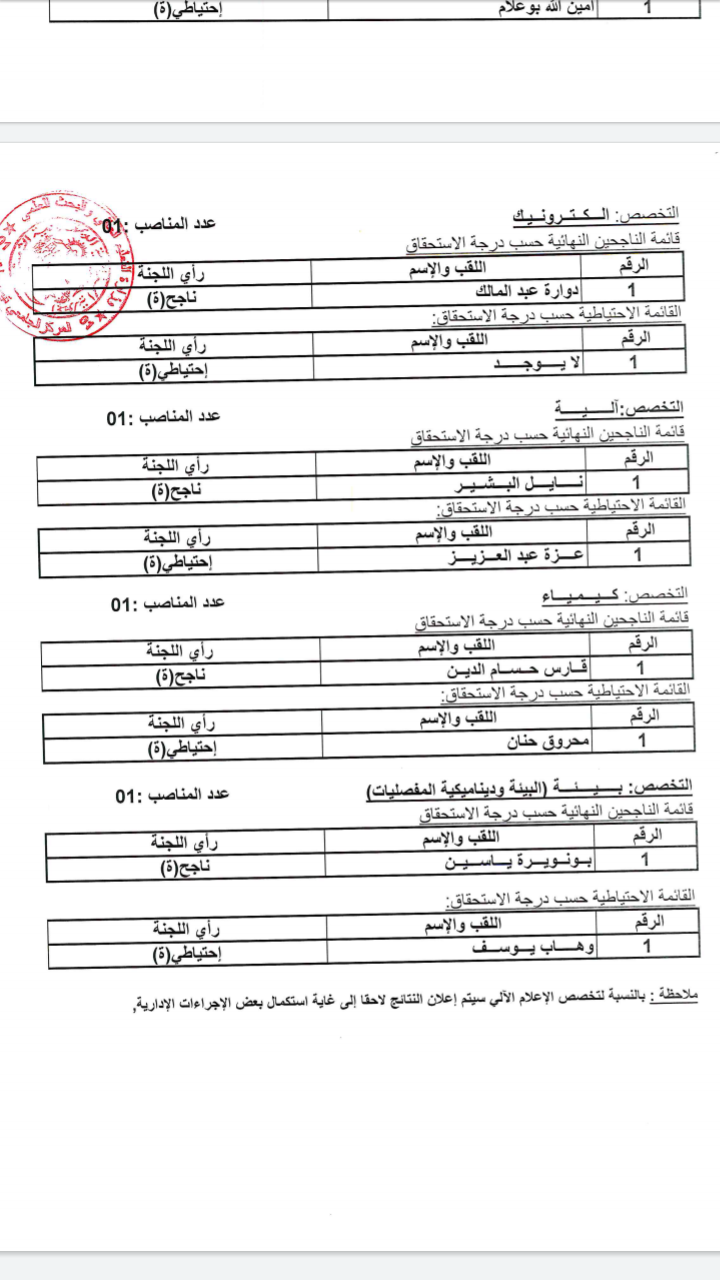 1 أمين الله بوعلام إحتياطي(ة)
التخصص: الـكـتـرونـيـك عدد المناصب :01
قائمة الناجحين النهائية حسب درجة الاستحقاق
الرقم اللقب والإسم رأي اللجنة
1 دوارة عبد المالك ناجح(ة)
القائمة الاحتياطية حسب درجة الاستحقاق:
الرقم اللقب والإسم رأي اللجنة
1 لا يـــوجـــد إحتياطي(ة)
التخصص:آلـــيـــة عدد المناصب :01
قائمة الناجحين النهائية حسب درجة الاستحقاق
الرقم اللقب والإسم رأي اللجنة
1 نـــايـــل البـشـيـر ناجح(ة)
القائمة الاحتياطية حسب درجة الاستحقاق:
الرقم اللقب والإسم رأي اللجنة
1 عـزة عبد العـزيـز إحتياطي(ة)
التخصص: كـيـمـيـاء عدد المناصب :01
قائمة الناجحين النهائية حسب درجة الاستحقاق
الرقم اللقب والإسم رأي اللجنة
1 قـارس حـسـام الديـن ناجح(ة)
القائمة الاحتياطية حسب درجة الاستحقاق:
الرقم اللقب والإسم رأي اللجنة
1 محروق حنان إحتياطي(ة)
التخصص: بـيـئـة (البيئة وديناميكية المفصليات) عدد المناصب :01
قائمة الناجحين النهائية حسب درجة الاستحقاق
الرقم اللقب والإسم رأي اللجنة
1 بـونـويـرة يـاسـيـن ناجح(ة)
القائمة الاحتياطية حسب درجة الاستحقاق:
الرقم اللقب والإسم رأي اللجنة
1 وهـــاب يـوسـف إحتياطي(ة)
ملاحظة : بالنسبة لتخصص الإعلام الآلي سيتم إعلان النتائج لاحقا إلى غاية استكمال بعض الإجراءات الإدارية,